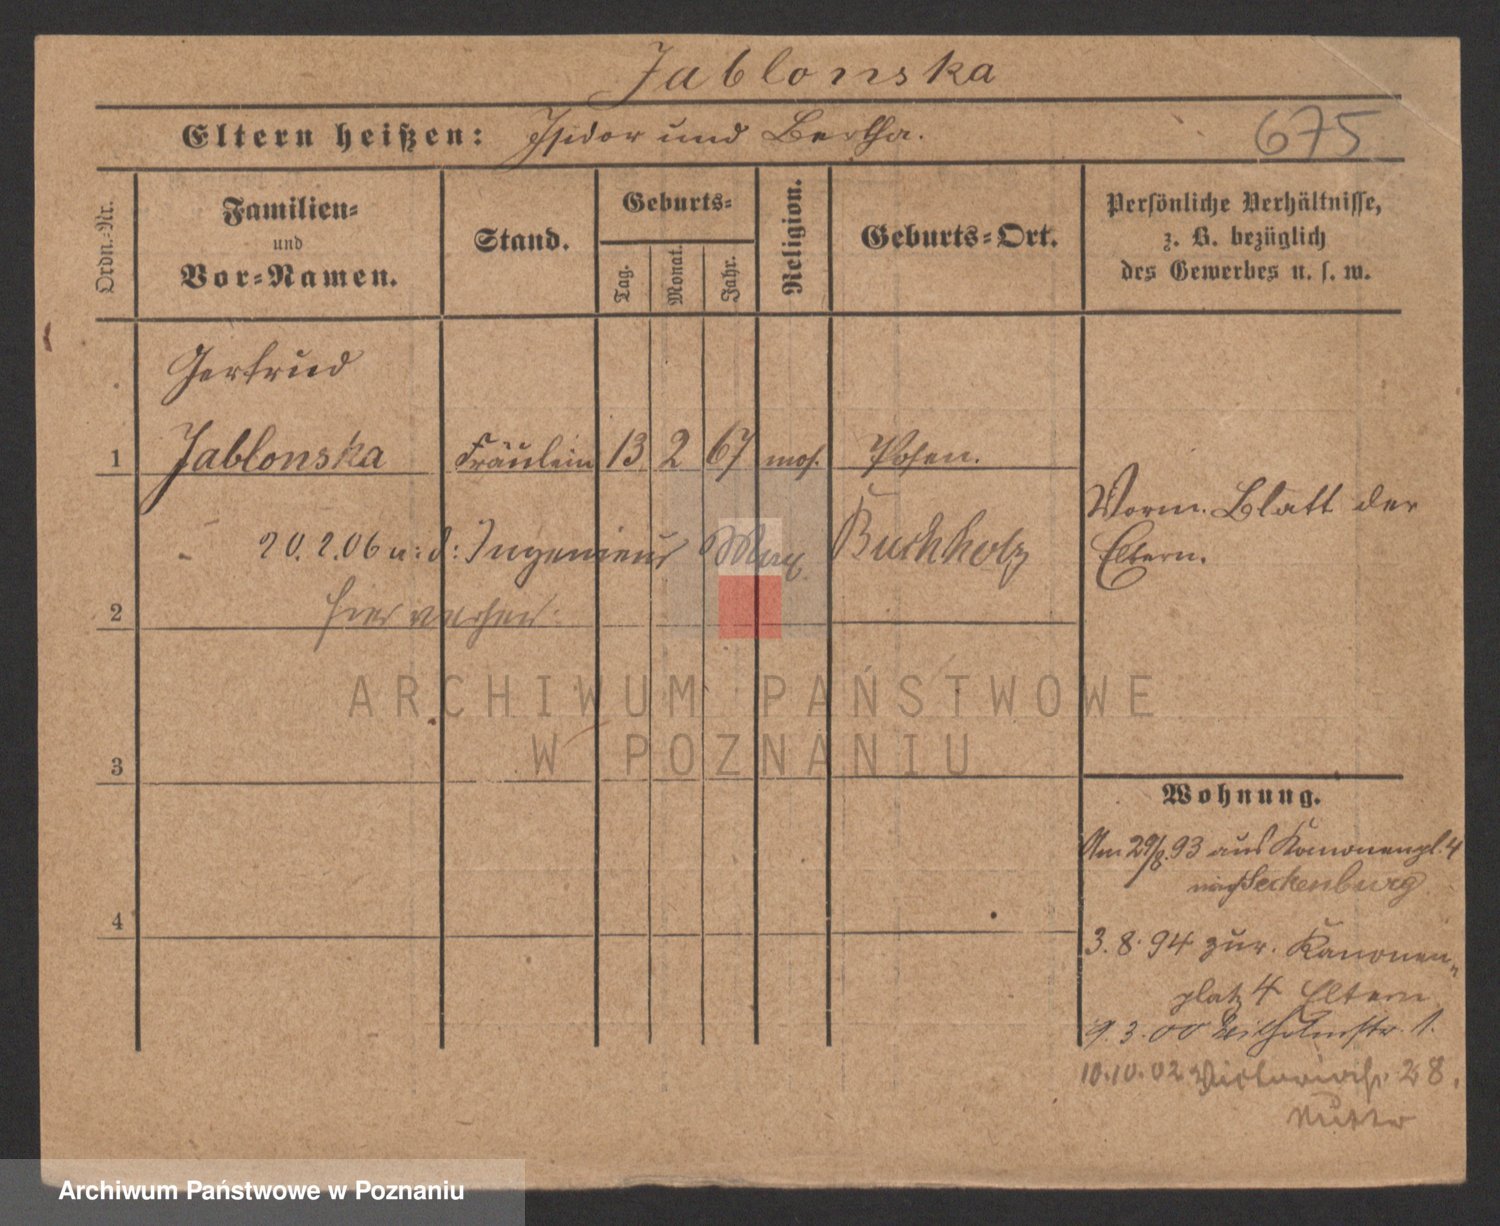 Jablonska
Eltern heißen: Isidor und Bertha.
675
Ordn.-Nr.
Familien-
und
Vor-Namen.
Stand.
Geburts-
Tag.
Monat.
Jahr.
Religion.
Geburts-Ort.
Persönliche Verhältnisse,
z. B. bezüglich
des Gewerbes u. s. w.
Gertrud
1 Jablonska Fräulein 13 2 67 mos. Posen.
Vorm. Blatt der
Eltern.
20.2.06 u: d: Ingenieur Max Buchholz
2 hier verheir:
ARCHIWUM PAŃSTWOWE
W POZNANIU
3
Wohnung.
Am 29/8.93 aus Kanonenpl. 4
nach Seckenburg
4
3.8.94 zur. Kanonen-
platz 4 Eltern
9.3.00 Wilhelmstr. 1.
10.10.02 28.
Mutter
Archiwum Państwowe w Poznaniu